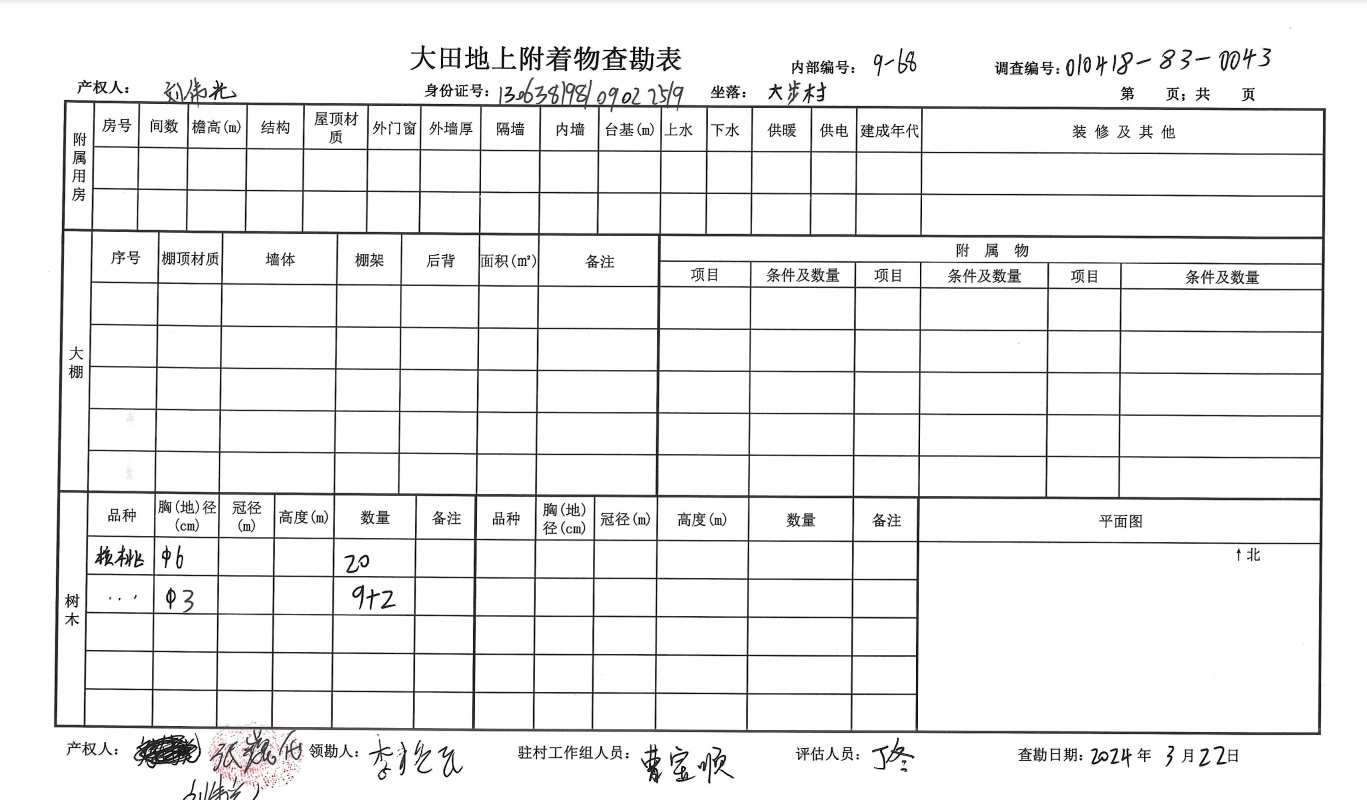 大田地上附着物查勘表
内部编号: 9-68 调查编号: 010418-83-0043
产权人: 刘伟光 身份证号: 130638198109022519 坐落: 大步村 第 页; 共 页
附属用房 房号 间数 檐高(m) 结构 屋顶材质 外门窗 外墙厚 隔墙 内墙 台基(m) 上水 下水 供暖 供电 建成年代 装修及其他
大棚 序号 棚顶材质 墙体 棚架 后背 面积(m²) 备注 附属物
项目 条件及数量 项目 条件及数量 项目 条件及数量
树木 品种 胸(地)径(cm) 冠径(m) 高度(m) 数量 备注 品种 胸(地)径(cm) 冠径(m) 高度(m) 数量 备注 平面图
核桃 φ6 20 ↑北
... φ3 9+2
产权人: 领勘人: 驻村工作组人员: 曹宝顺 评估人员: 丁冬 查勘日期: 2024年3月22日